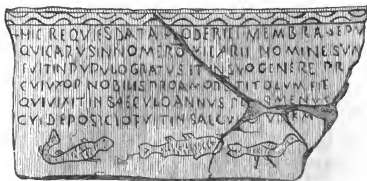 HIC REQVIES DATA HODERICI MEMBRA SEPV
QVI CARVS IN NOMERO VICARII NOMINE SVM
FVIT IN PVPVLO GRATVS ET SVO GENERE PR
CVIVXOR NOBILIS PRO AMORE TITOLVM FIE
QVI VIXIT IN SAECVLO ANNVS
CVI DEPOSICIO FVIT IN SAECVL